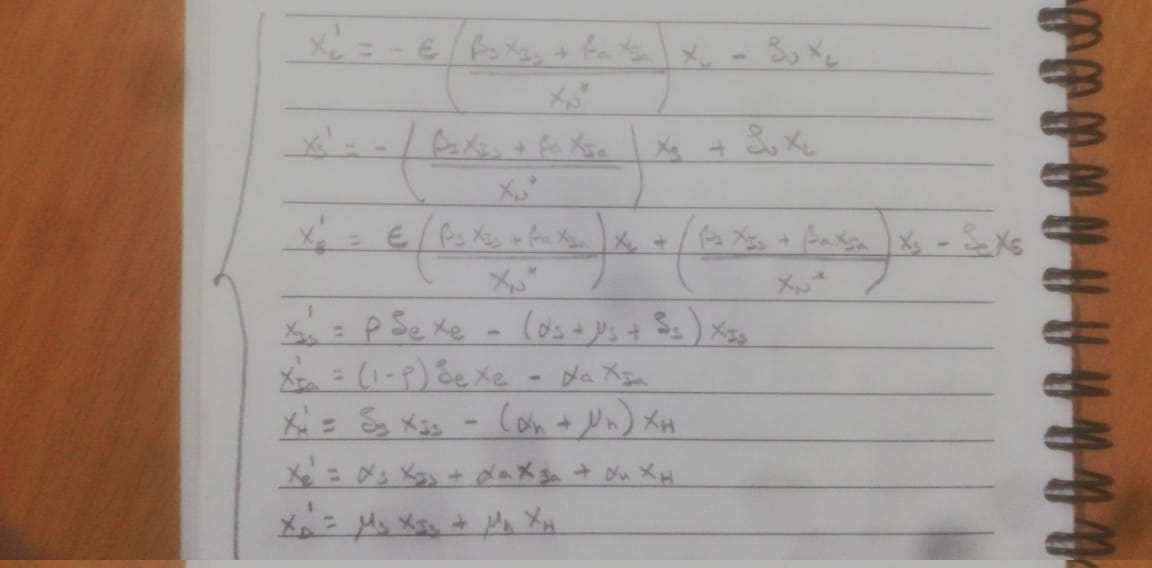 x_L' = - ε ( (β_s x_Is + β_a x_Ia) / x_N* ) x_L - δ_L x_L
x_S' = - ( (β_s x_Is + β_a x_Ia) / x_N* ) x_S + δ_L x_L
x_E' = ε ( (β_s x_Is + β_a x_Ia) / x_N* ) x_L + ( (β_s x_Is + β_a x_Ia) / x_N* ) x_S - δ_e x_E
x_Is' = ρ δ_e x_e - (α_s + μ_s + δ_s) x_Is
x_Ia' = (1-ρ) δ_e x_e - α_a x_Ia
x_H' = δ_s x_Is - (α_h + μ_h) x_H
x_R' = α_s x_Is + α_a x_Ia + α_h x_H
x_D' = μ_s x_Is + μ_h x_H